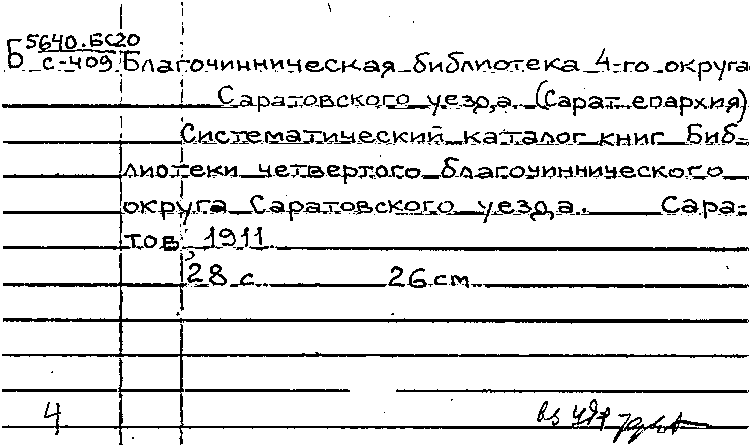 Б 5640.БС20
С-409 Благочинническая библиотека 4-го округа
Саратовского уезда. (Сарат. епархия)
Систематический каталог книг Биб-
лиотеки четвертого благочиннического
округа Саратовского уезда. Сара-
тов, 1911.
28 с. 26 см.
4